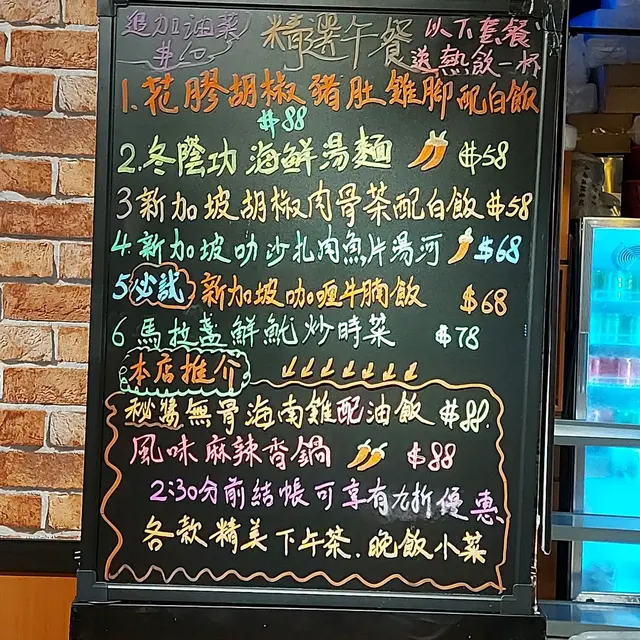 追加油菜
精選午餐
以下套餐
送熱飲一杯
1.花膠胡椒豬肚雞腳配白飯
$88
2.冬蔭功海鮮湯麵 $58
3新加坡胡椒肉骨茶配白飯$58
4.新加坡叻沙扎肉魚片湯河 $68
5必試 新加坡咖喱牛腩飯 $68
6 馬拉盞鮮魷炒時菜 $78
本店推介
秘醬無骨海南雞配油飯 $88.
風味麻辣香鍋 $88
2:30分前結帳可享有九折優惠
各款精美下午茶.晚飯小菜